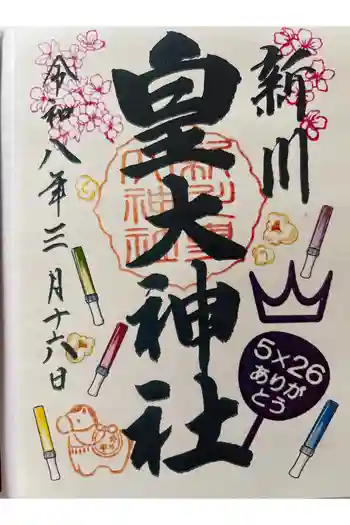 新川
皇大神社
令和八年三月十六日
5×26
ありが
とう